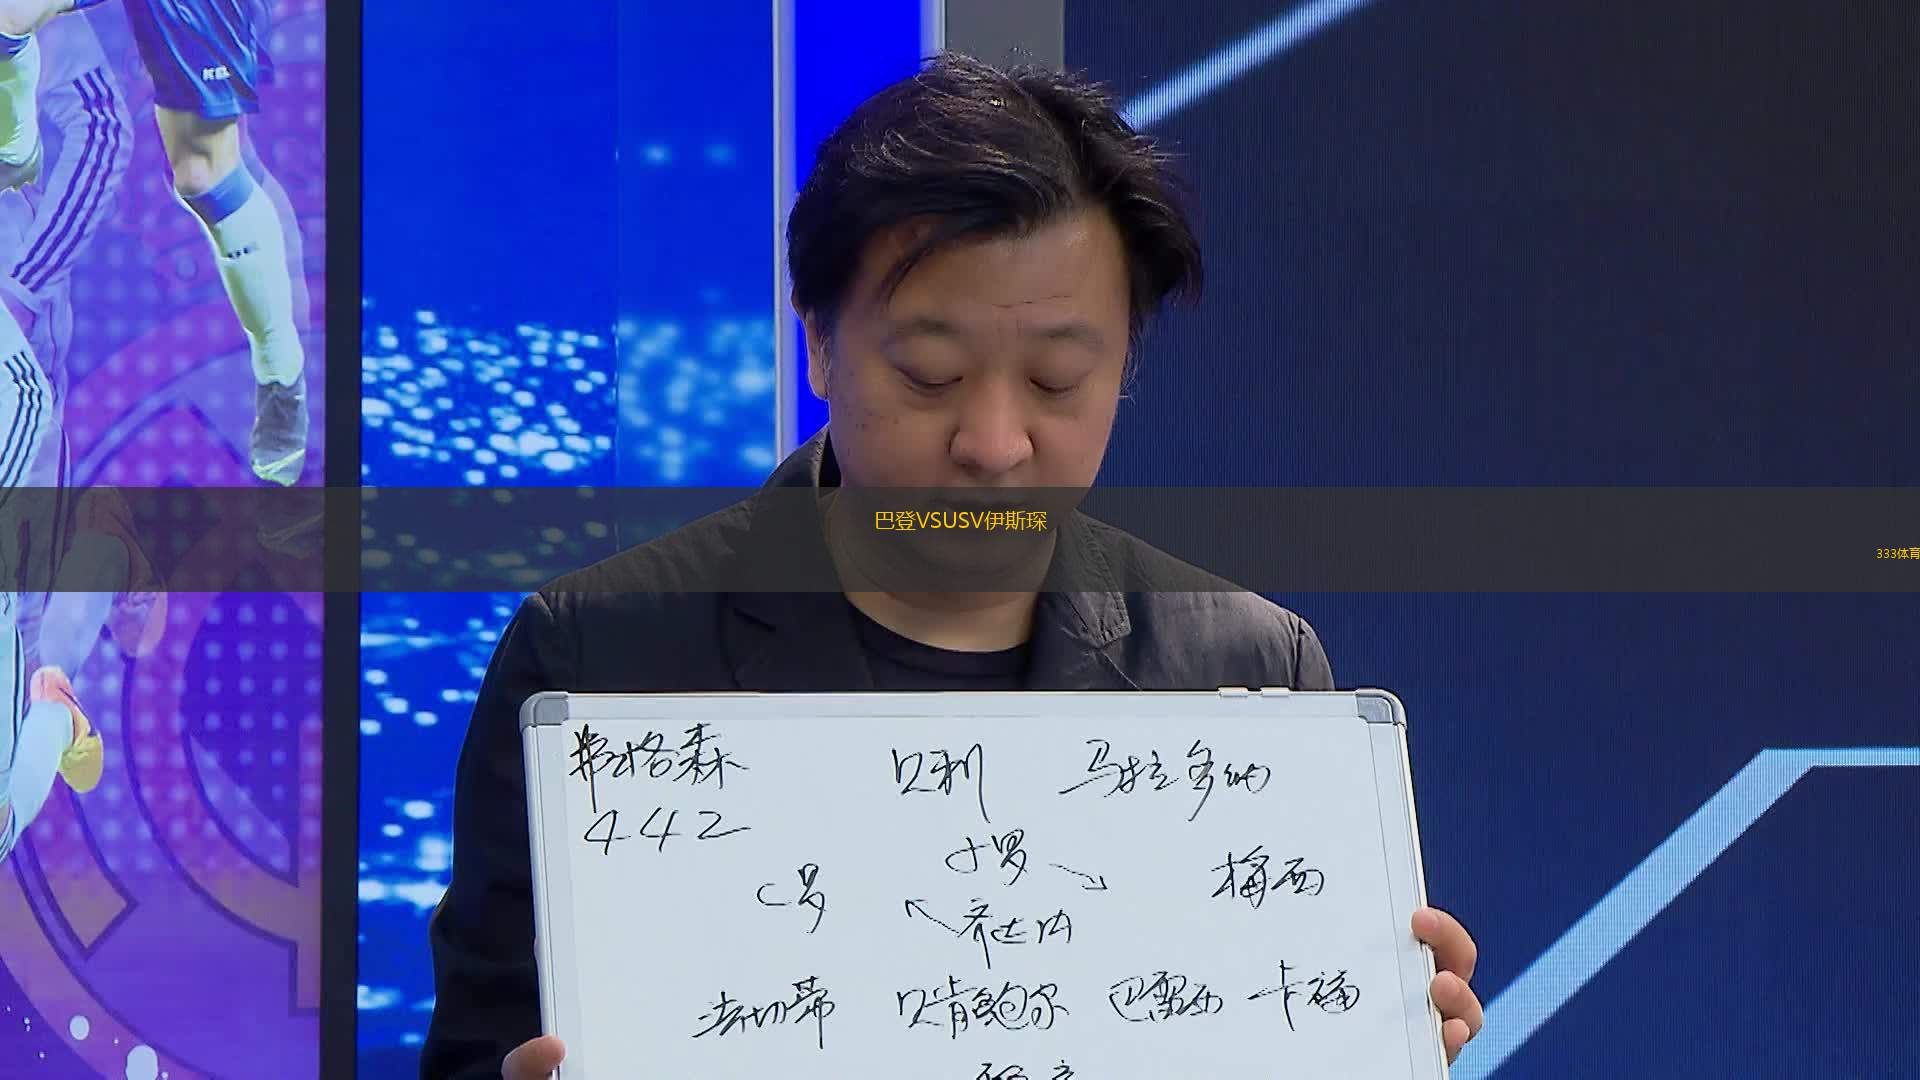 巴登VSUSV伊斯琛
333体育
弗格森 贝利 马拉多纳
442
小罗
C罗 梅西
齐达内
法切蒂 贝肯鲍尔 巴雷西 卡福